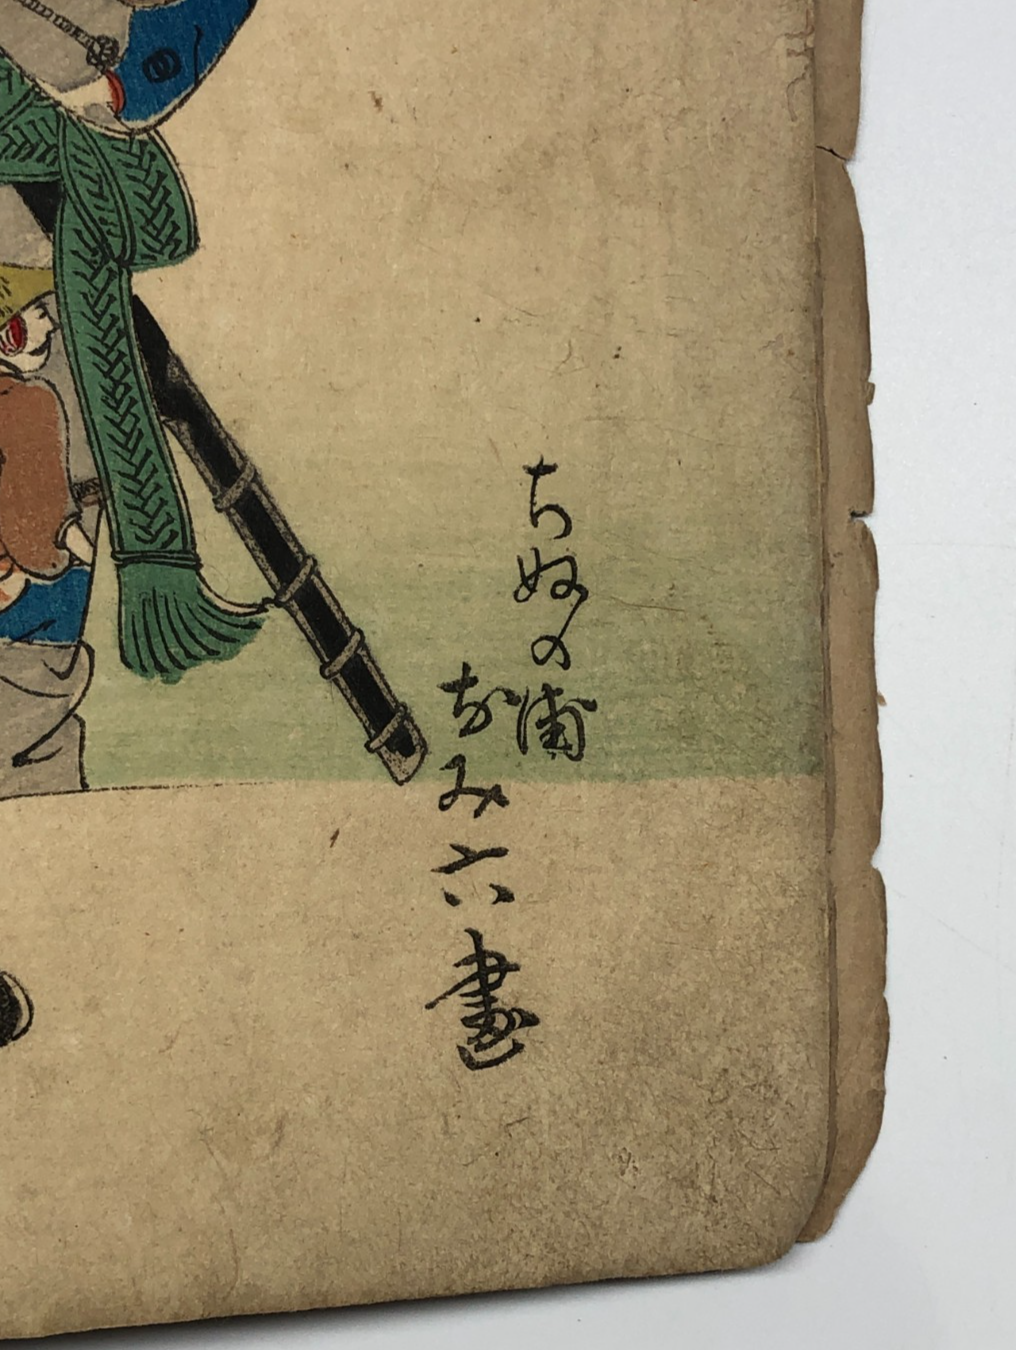 ちぬの浦
なみ六畫